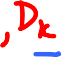 , Dk